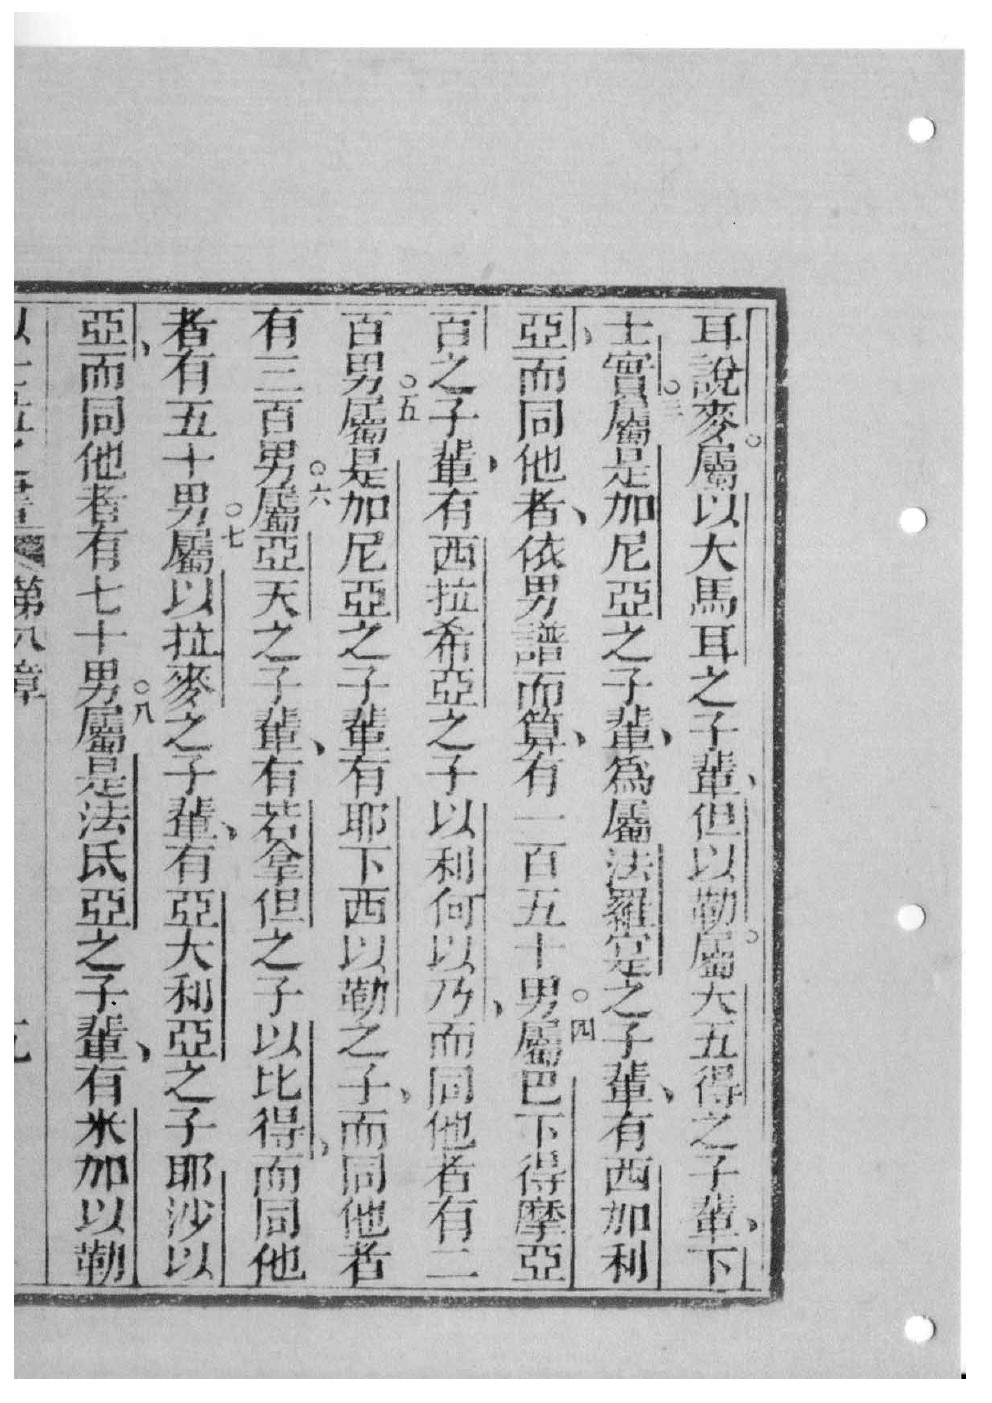 耳說麥。屬以大馬耳之子輩、但以勒。屬大五得之子輩、下
士實○三屬是加尼亞之子輩、為屬法羅寔之子輩、有西加利
亞、而同他者、依男譜而算、有一百五十男○四屬巴下得摩亞
百之子輩、有西拉希亞之子以利何以乃、而同他者有二
百男○五屬是加尼亞之子輩有耶下西以勒之子、而同他者
有三百男○六屬亞天之子輩、有若拿但之子以比得、而同他
者有五十男○七屬以拉麥之子輩、有亞大利亞之子耶沙以
亞、而同他者有七十男○八屬是法氐亞之子輩、有米加以勒
第八章